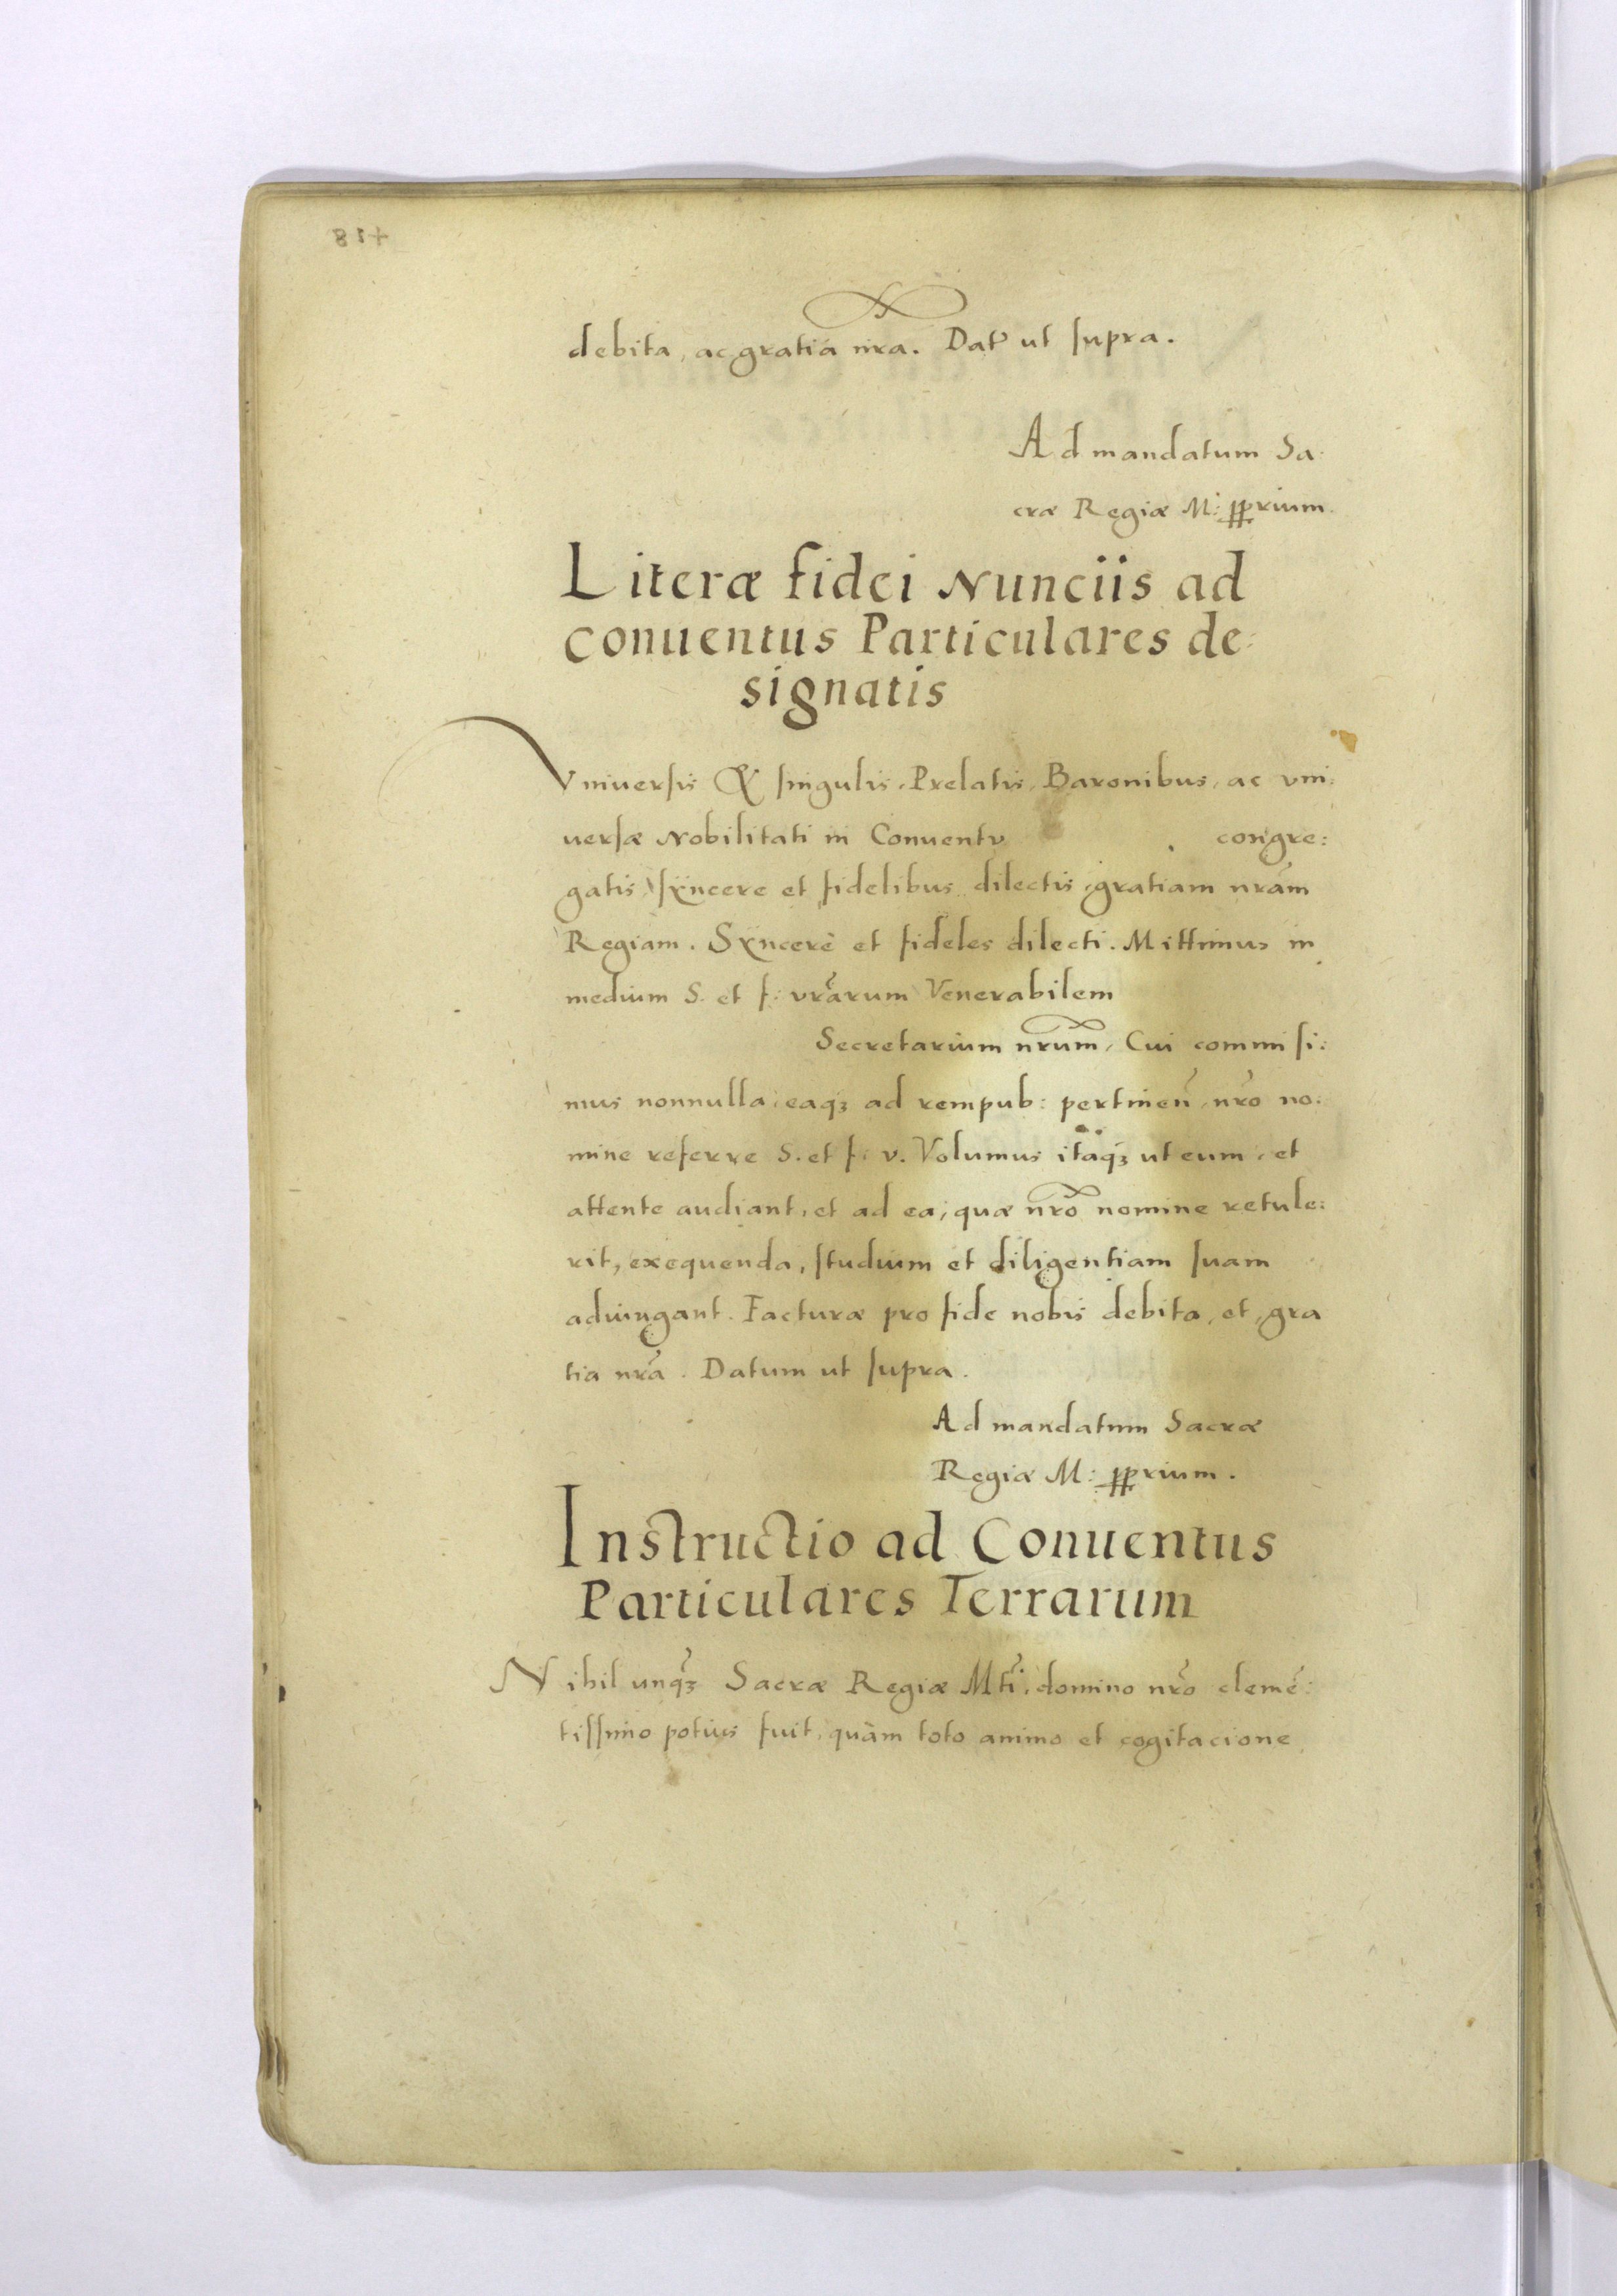 debita, ac gratia nr̃a. Dat̃ ut supra.
Ad mandatum Sa:
cræ Regiæ M: pprium.
Literæ fidei Nunciis ad
conuentus Particulares de:
signatis
Vniuersis & singulis, Prelatis, Baronibus, ac vni:
uersæ Nobilitati in Conuentv congre:
gatis, sÿncere et fidelibus dilectis, gratiam nrãm
Regiam. Sÿncerè et fideles dilecti. Mittimus in
medium S. et f: vrãrum Venerabilem
Secretarium nrum̃, Cui commisi:
mus nonnulla, eaqꝫ ad rempub: pertineñ, nrõ no:
mine referre S. et f: v. Volumus itaqꝫ ut eum, et
attente audiant, et ad ea, quæ nrõ nomine retule:
rit, exequenda, studium et diligentiam suam
adiungant. Facturæ pro fide nobis debita, et gra
tia nrã. Datum ut supra.
Ad mandatum Sacræ
Regiæ M: pprium.
Instructio ad Conuentus
Particulares Terrarum
Nihil unqꝫ Sacræ Regiæ Mti̇̃, domino nrõ clemẽ:
tissimo potius fuit, quàm toto animo et cogitacione